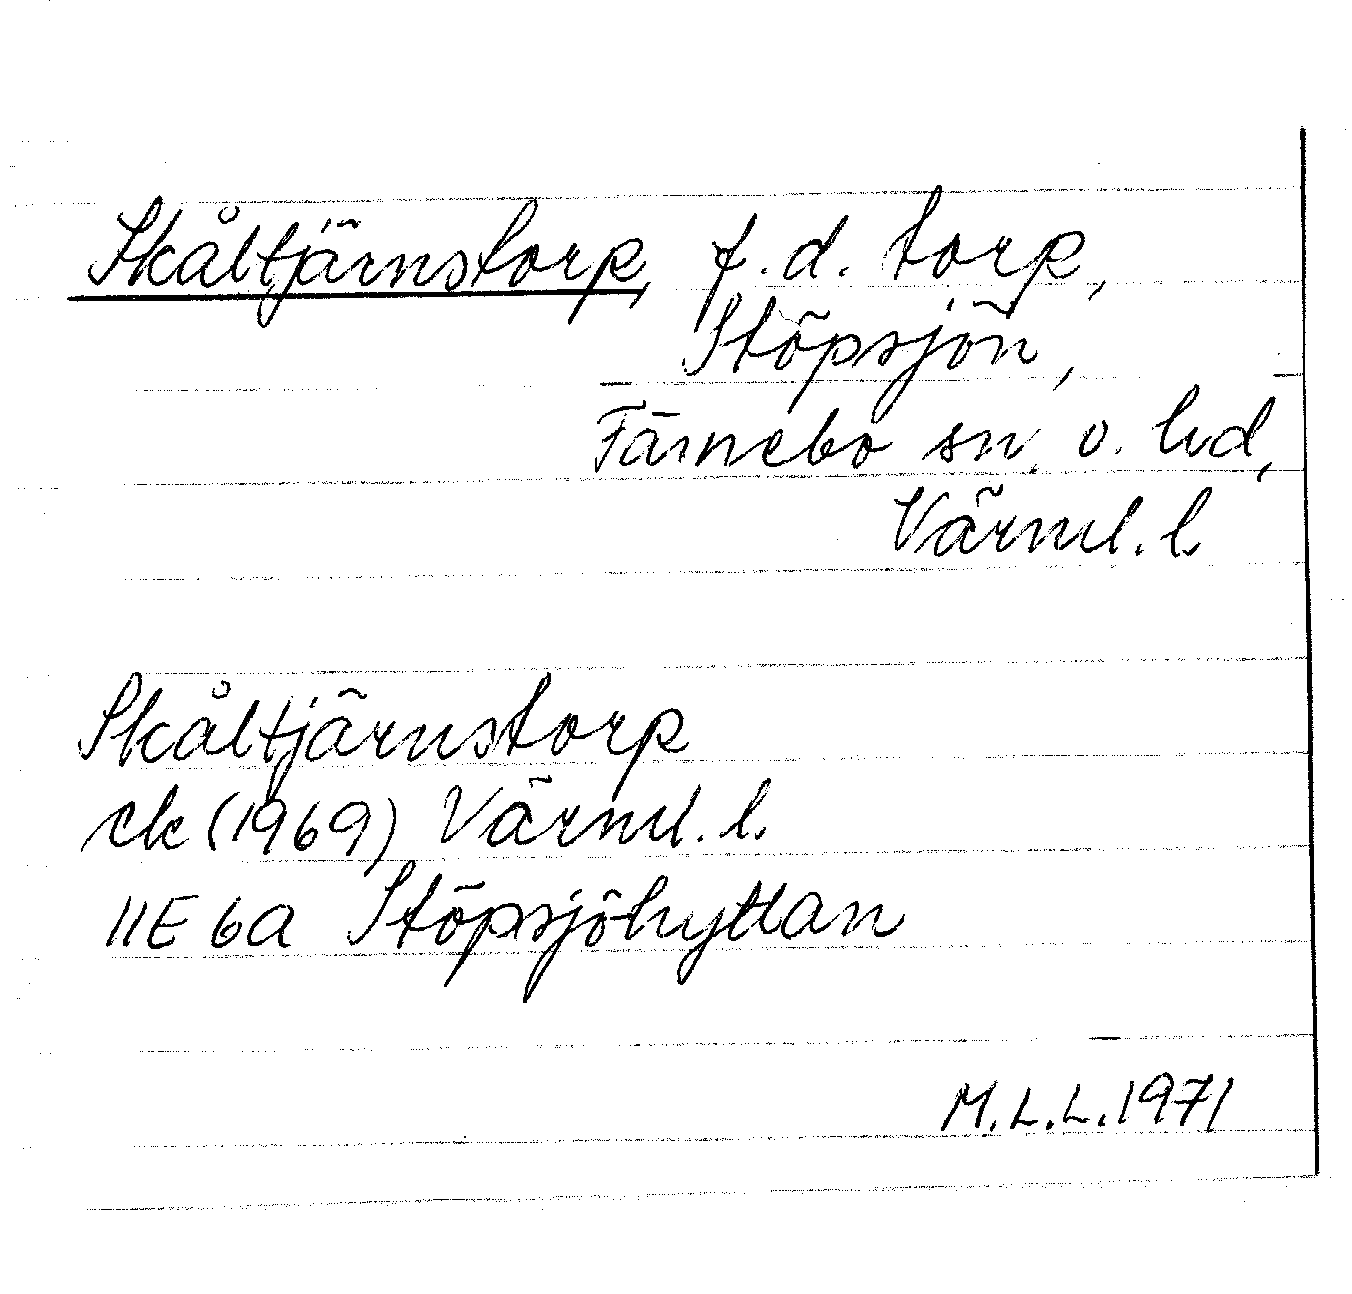 Skåltjärnstorp, f.d. torp,
Stöpsjön,
Färnebo sn o. hd,
Värml. l.
Skåltjärnstorp
ek (1969) Värml. l.
11E 6a Stöpsjöhyttan
M.L.L. 1971